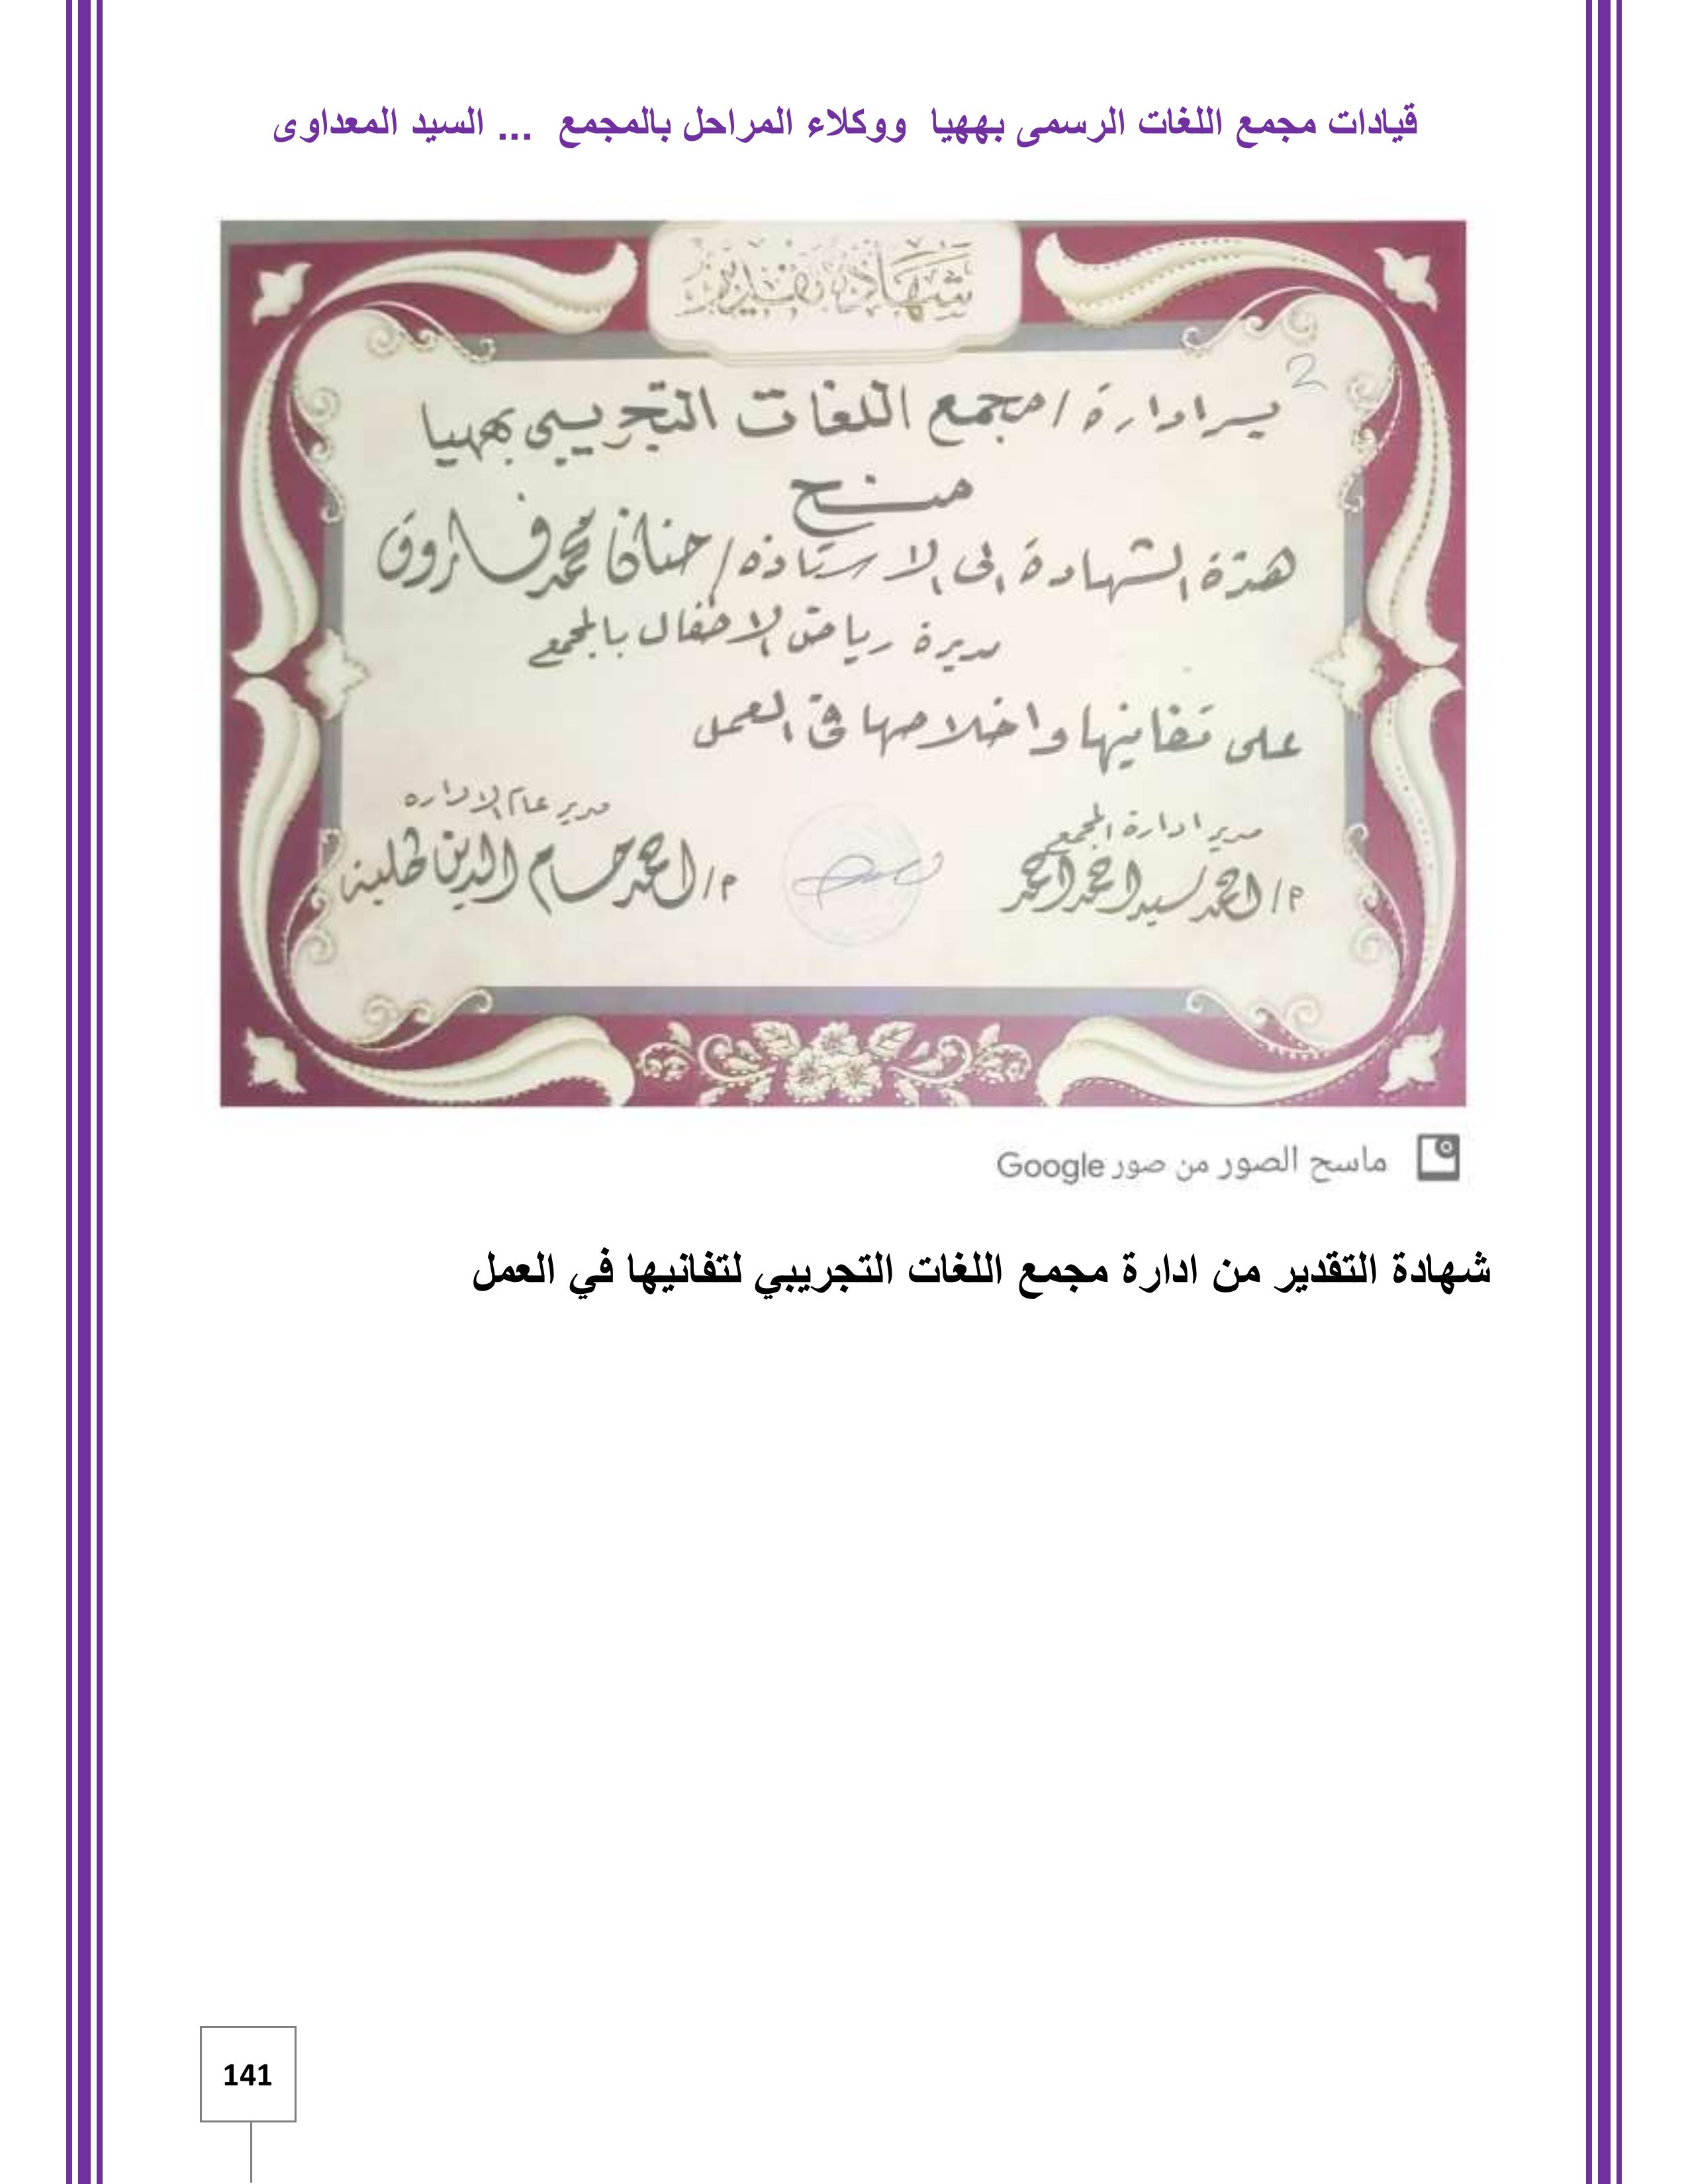 قيادات مجمع اللغات الرسمى بههيا ووكلاء المراحل بالمجمع ... السيد المعداوى
شهادة تقدير
2
يسر ادارة / مجمع اللغات التجريبى بههيا
منح
هذة الشهادة الى الاستاذه / حنان محمد فاروق
مديرة رياض الاطفال بالمجمع
على تفانيها واخلاصها فى العمل
مدير ادارة المجمع
م/ احمد سيد احمد احمد
مدير عام الاداره
م/ احمد حسام الدين طلبة
ماسح الصور من صور Google
شهادة التقدير من ادارة مجمع اللغات التجريبي لتفانيها في العمل
141